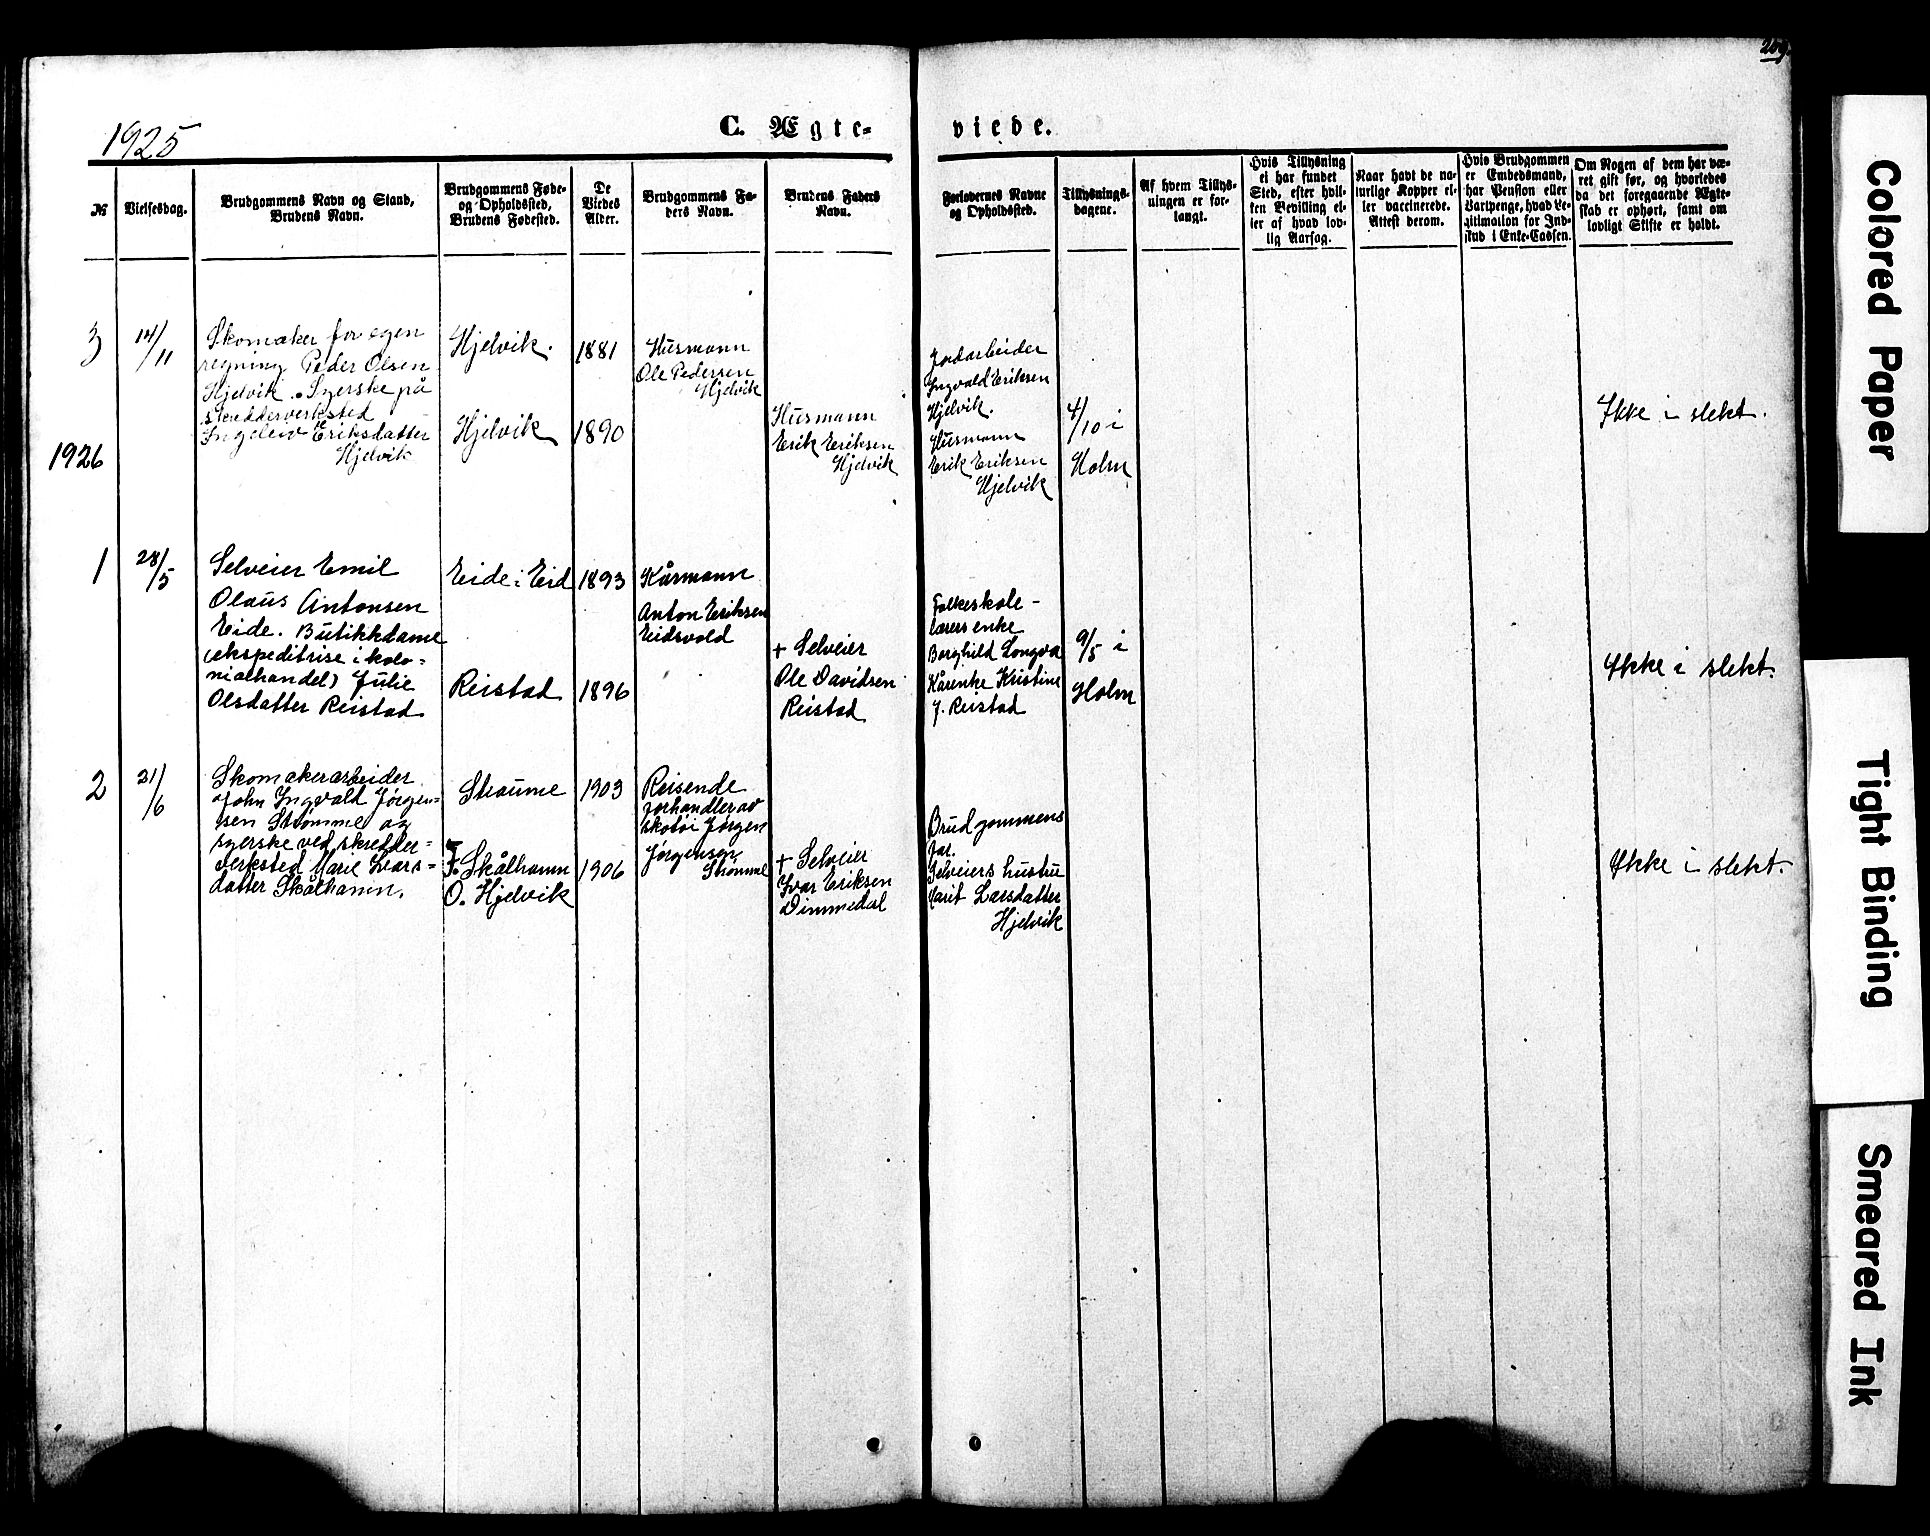 209
1925
C. Ægte-
viede.
№
Vielsesdag.
Brudgommens Navn og Stand,
Brudens Navn.
Brudgommens Føde-
og Opholdssted,
Brudens Fødested.
De
Viedes
Alder.
Brudgommens Fa-
ders Navn.
Brudens Faders
Navn.
Forlovernes Navne
og Opholdssted.
Tillysnings-
dagene.
Af hvem Tillys-
ningen er for-
langt.
Hvis Tillysning
ei har fundet
Sted, efter hvil-
ken Bevilling el-
ler af hvad lov-
lig Aarsag.
Naar havt de na-
turlige Kopper el-
ler vaccinerede.
Attest derom.
Hvis Brudgommen
er Embedsmand,
har Pension eller
Vartpenge, hvad Le-
gitimation for Ind-
skud i Enke-Cassen.
Om Nogen af dem har væ-
ret gift før, og hvorledes
da det foregaaende Ægte-
skab er ophørt, samt om
lovligt Skifte er holdt.
3
14/11
Skomaker for egen
regning Peder Olsen
Hjelvik. Syerske på
skredderverksted
Ingeleiv Eriksdatter
Hjelvik
Hjelvik.
Hjelvik
1881
1890
Husmann
Ole Pedersen
Hjelvik
Husmann
Erik Eriksen
Hjelvik
Jordarbeider
Ingvald Eriksen
Hjelvik.
Husmann
Erik Eriksen
Hjelvik
4/10 i
Holm
Ikke i slekt.
1926
1
28/5
Selveier Emil
Olaus Antonsen
Eide. Butikkdame
(ekspeditrise i kolo-
nialhandel) Julie
Olsdatter Reistad
Eide i Eid
Reistad
1893
1896
Kårmann
Anton Eriksen
Eidsvold
+ Selveier
Ole Davidsen
Reistad
Folkeskole-
lærers enke
Borghild Longva
Kårenke Kristine
J. Reistad
9/5 i
Holm
Ikke i slekt.
2
21/6
Skomakerarbeider
John Ingvald Jørgen-
sen Strømme og
syerske ved skredder-
verksted Marie Ivars-
datter Skålhamn.
Straume
F. Skålhamn
O. Hjelvik
1903
1906
Reisende
forhandler av
skotøi Jørgen
Jørgensen
Strømme
+ Selveier
Ivar Eriksen
Dimmedal
Brudgommens
far.
Selveiers hustru
Marit Larsdatter
Hjelvik
Ikke i slekt.
Colored Paper
Tight Binding
Smeared Ink